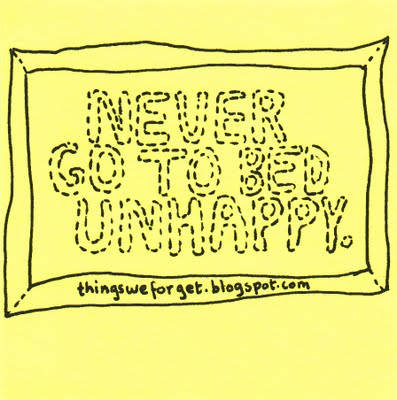 NEVER
GO TO BED
UNHAPPY.
thingsweforget.blogspot.com